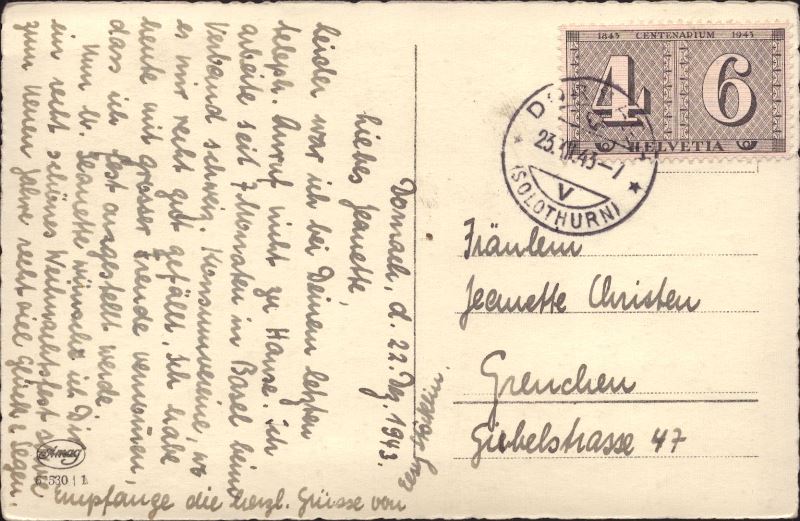 Dornach, d. 22. Dez. 1943.
Liebes Jeanette,
leider war ich bei Deinem letzten
teleph. Anruf nicht zu Hause. Ich
arbeite seit 7 Monaten in Basel beim
Verband schweiz. Konsumvereine, wo
es mir recht gut gefällt. Ich habe
heute mit grosser Freude vernommen,
dass ich fest angestellt werde.
Nun lb. Jeanette wünsche ich Dir
ein recht schönes Weihnachtsfest sowie
zum neuen Jahre recht viel Glück & Segen.
Empfange die herzl. Grüsse von
1843 CENTENARIUM 1943
4 6
HELVETIA
23.XII.43-7
V
(SOLOTHURN)
Fräulein
Jeanette Christen
Grenchen
Giebelstrasse 47
Amag